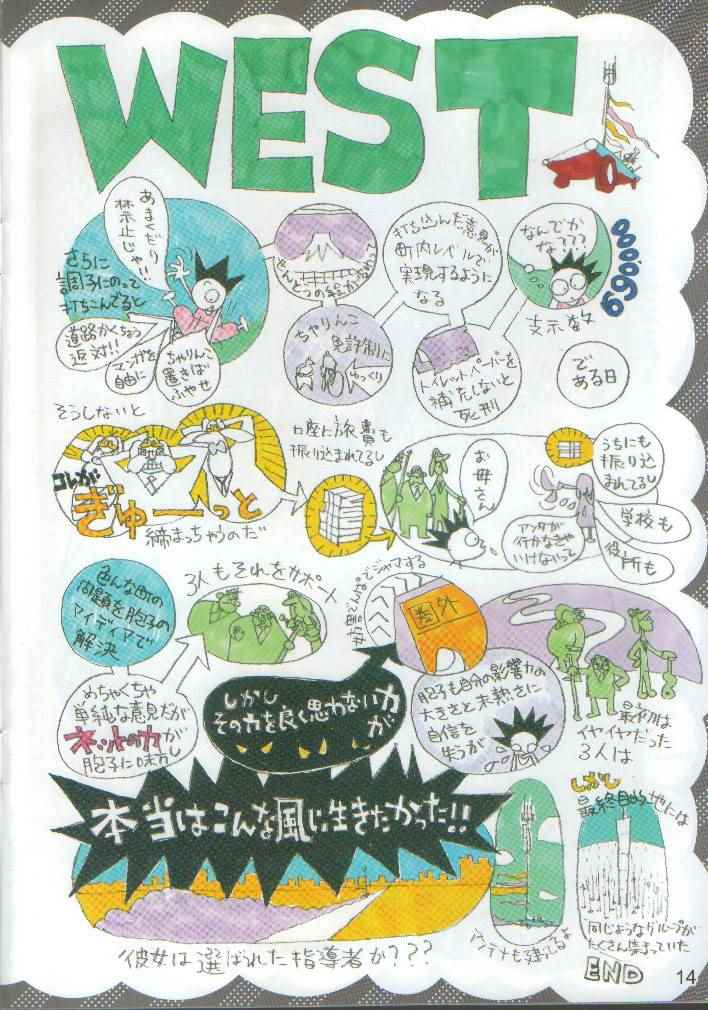 WEST
あまくだり
禁止じゃ!!
さらに
調子にのって
打ちこんでると
道路かくちょう
反対!!
マンガを
自由に
ちゃりんこ
置きば
ふやせ
打ち込んだ意見が
町内レベルで
実現するように
なる
ちゃりんこ
免許制に
ゆっくり
トイレットペーパーを
補充しないと
死刑
なんでか
な???
支示数
69000
で
ある日
そうしないと
コレが
ぎゅーっと
締まっちゃうのだ
口座に旅費も
振り込まれてるし
お母さん
うちにも
振り込
まれてるし
アンタが
行かなきゃ
いけないって
学校も
役所も
色んな町の
問題を胞子の
アイディアで
解決
3人もそれをサポート
めちゃくちゃ
単純な意見だが
ネットの力が
胞子に味方し
しかし
その力を良く思わない力
が
でジャマする
圏外
胞子も自分の影響力の
大きさと未熟さに
自信を
失うが
最初は
イヤイヤだった
3人は
本当はこんな風に生きたかった!!
アンテナも建てるよ
しかし
最終目的地には
同じようなグループが
たくさん集まっていた
彼女は選ばれた指導者か???
END
14